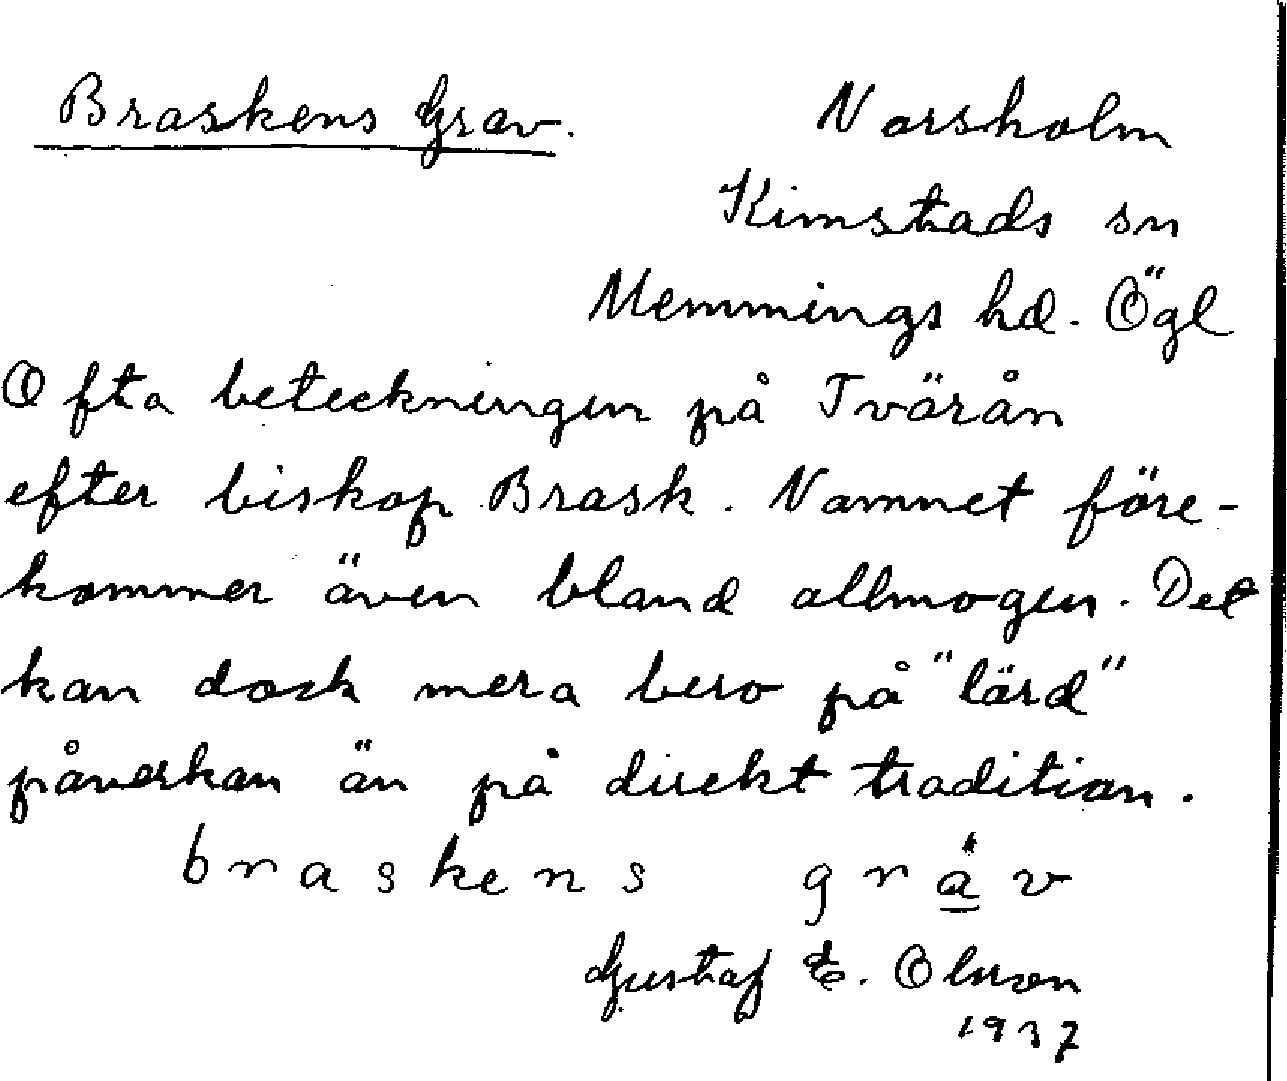 Braskens Grav.
Norsholm
Kimstads sn
Memmings hd. Ögl
Ofta beteckningen på Tvärån
efter biskop Brask. Namnet före-
kommer även bland allmogen. Det
kan dock mera bero på "lärd"
påverkan än på direkt tradition.
braskens gràv
Gustaf E. Olsson
1937